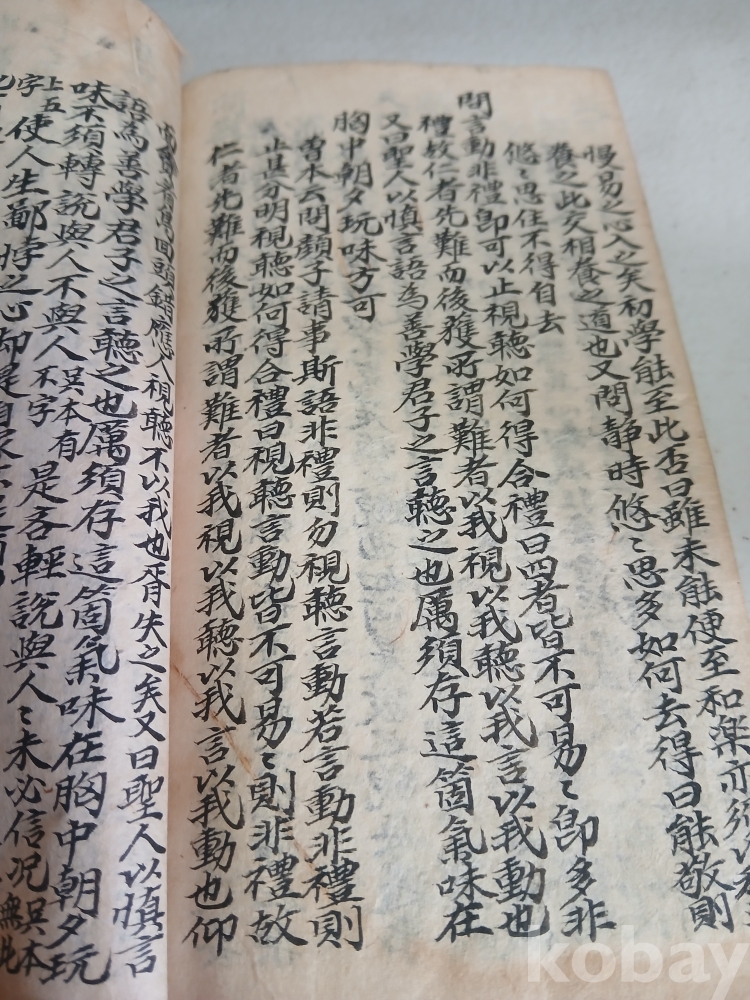 慢易之心入之矣初學能至此否曰雖未能便至和楽亦須以
養之此交相養之道也又問靜時悠〻思多如何去得曰能敬則
悠〻思住不得自去
問言動非禮即可以止視聽如何得合禮曰四者皆不可易〻即多非
禮故仁者先難而後獲所謂難者以我視以我聽以我言以我動也
又曰聖人以慎言語為善學君子之言聽之也厲須存這箇氣味在
胸中朝夕玩味方可
曾本云問顏子請事斯語非禮則勿視聽言動若言動非禮則
止甚分明視聽如何得合禮曰視聽言動皆不可易〻則非禮故
仁者先難而後獲所謂難者以我視以我聽以我言以我動也仰
面者烏回頭錯應人視聽不以我也胥失之矣又曰聖人以慎言
語為善學君子之言聽之也厲須存這箇氣味在胸中朝夕玩
味不須轉說與人不與人吳本有不字是吝輕說與人〻未必信況吳本無此
字上五使人生鄙悖之心却是自家